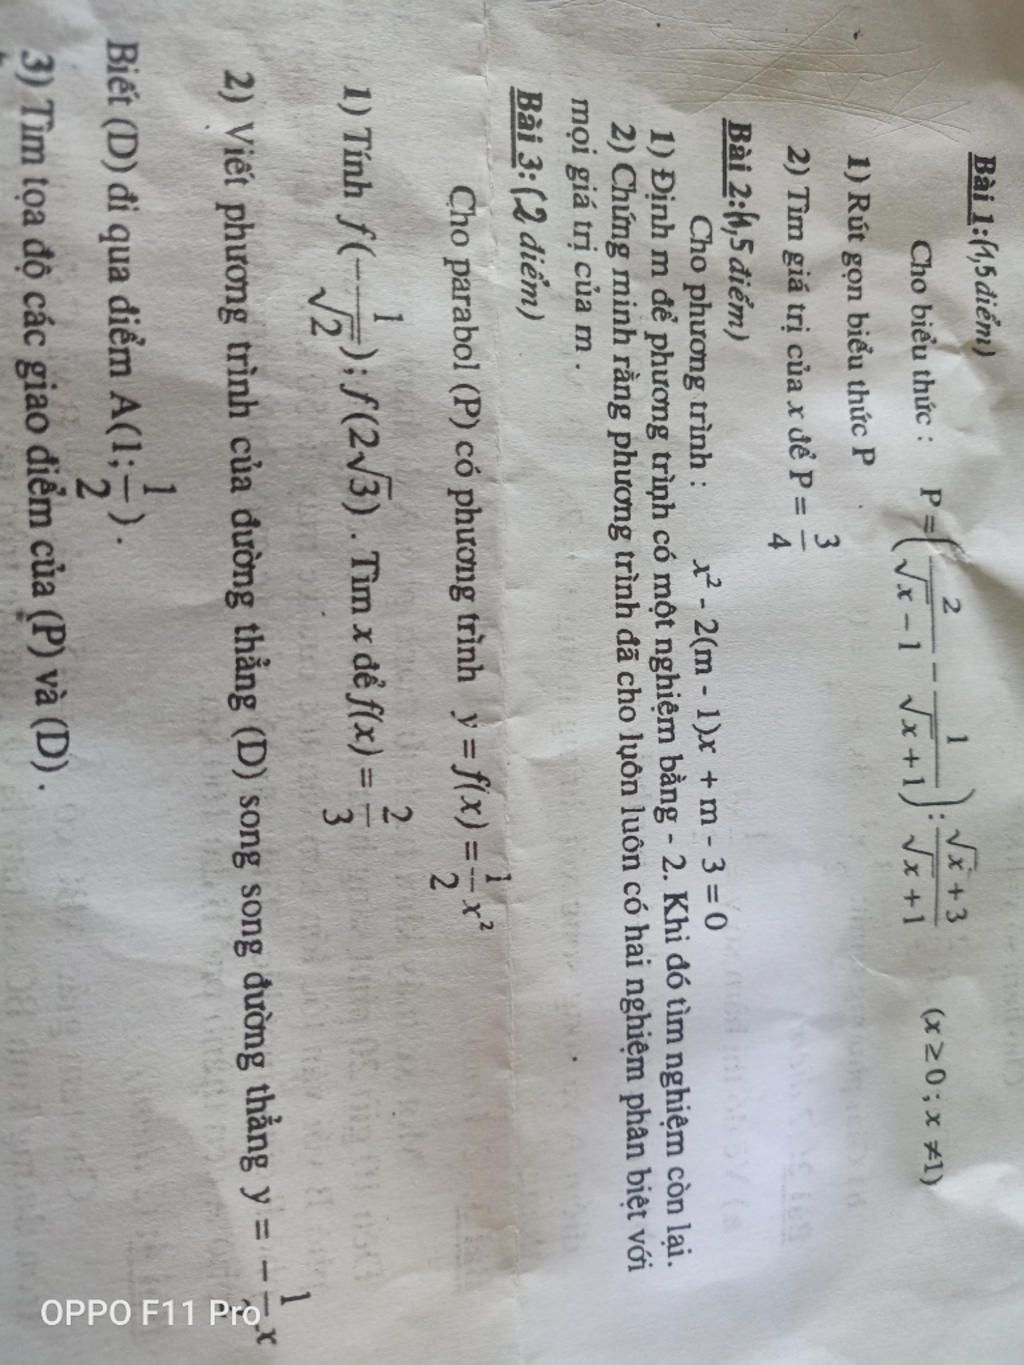 Bài 1:(1,5 điểm)
Cho biểu thức : P = ( 2/(√x − 1) − 1/(√x + 1) ) : (√x + 3)/(√x + 1) (x ≥ 0 ; x ≠1)
1) Rút gọn biểu thức P
2) Tìm giá trị của x để P = 3/4
Bài 2:(1,5 điểm)
Cho phương trình : x² - 2(m - 1)x + m - 3 = 0
1) Định m để phương trình có một nghiệm bằng - 2. Khi đó tìm nghiệm còn lại.
2) Chứng minh rằng phương trình đã cho luôn luôn có hai nghiệm phân biệt với
mọi giá trị của m .
Bài 3:(2 điểm)
Cho parabol (P) có phương trình y = f(x) = 1/2 x²
1) Tính f(− 1/√2) ; f(2√3) . Tìm x để f(x) = 2/3
2) Viết phương trình của đường thẳng (D) song song đường thẳng y = − 1/ x
Biết (D) đi qua điểm A(1; 1/2) .
3) Tìm tọa độ các giao điểm của (P) và (D) .
OPPO F11 Pro